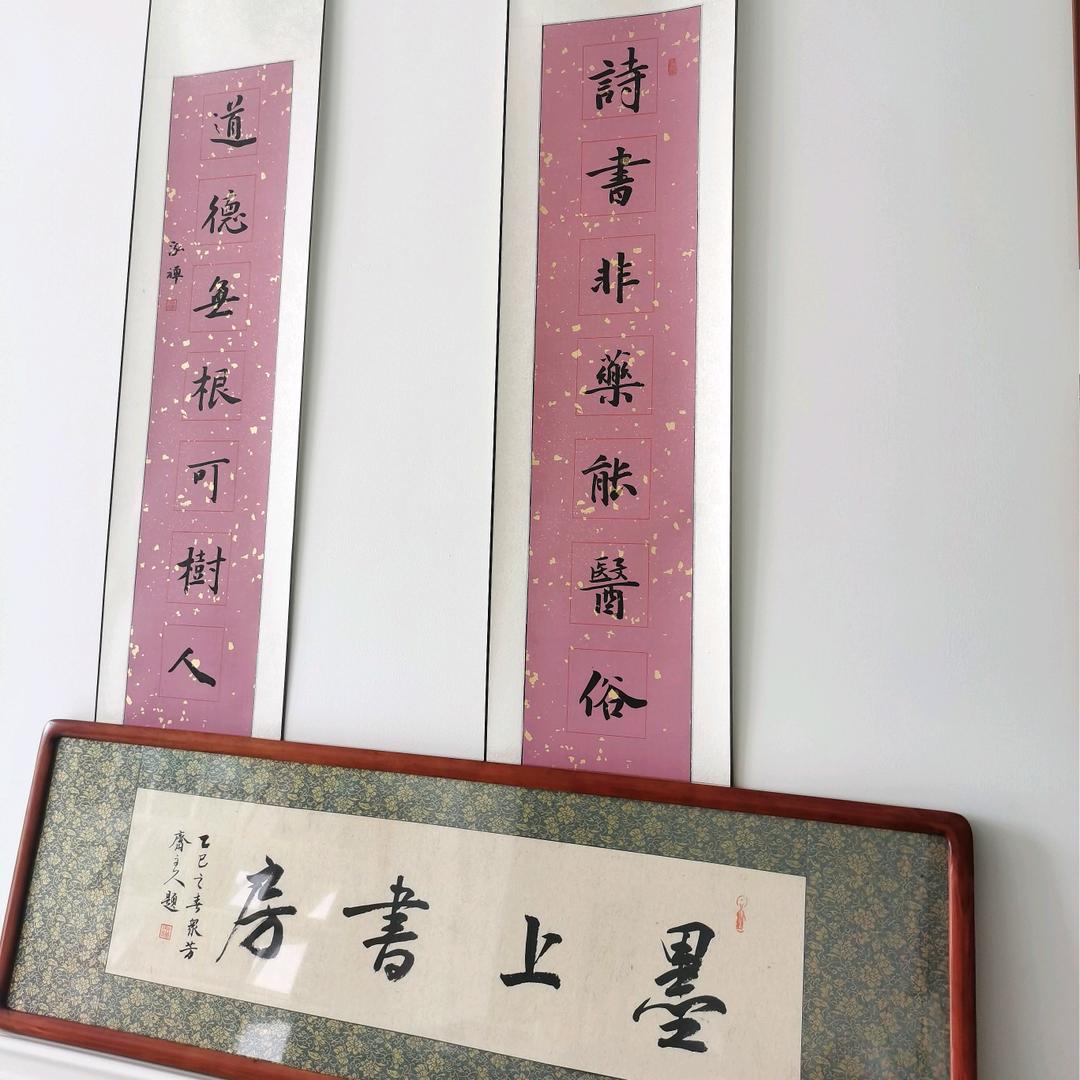 詩書非藥能醫俗
道德無根可樹人
泓禪
墨上書房
乙巳之春眾芳
齋主人題